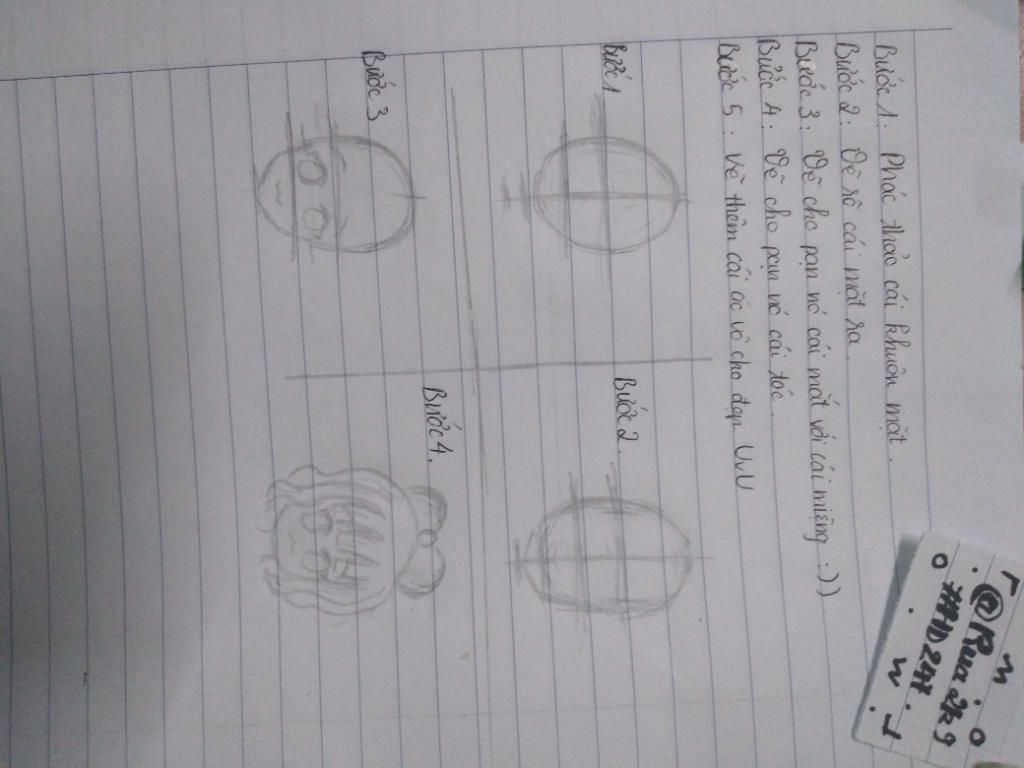 Bước 1. Phác thảo cái khuôn mặt.
Bước 2. Vẽ rõ cái mặt ra.
Bước 3. Vẽ cho pạn nó cái mắt với cái miệng :))
Bước 4. Vẽ cho pạn nó cái tóc.
Bước 5. Vẽ thêm cái cổ vô cho đẹp UvU
Bước 1
Bước 2.
Bước 3
Bước 4.